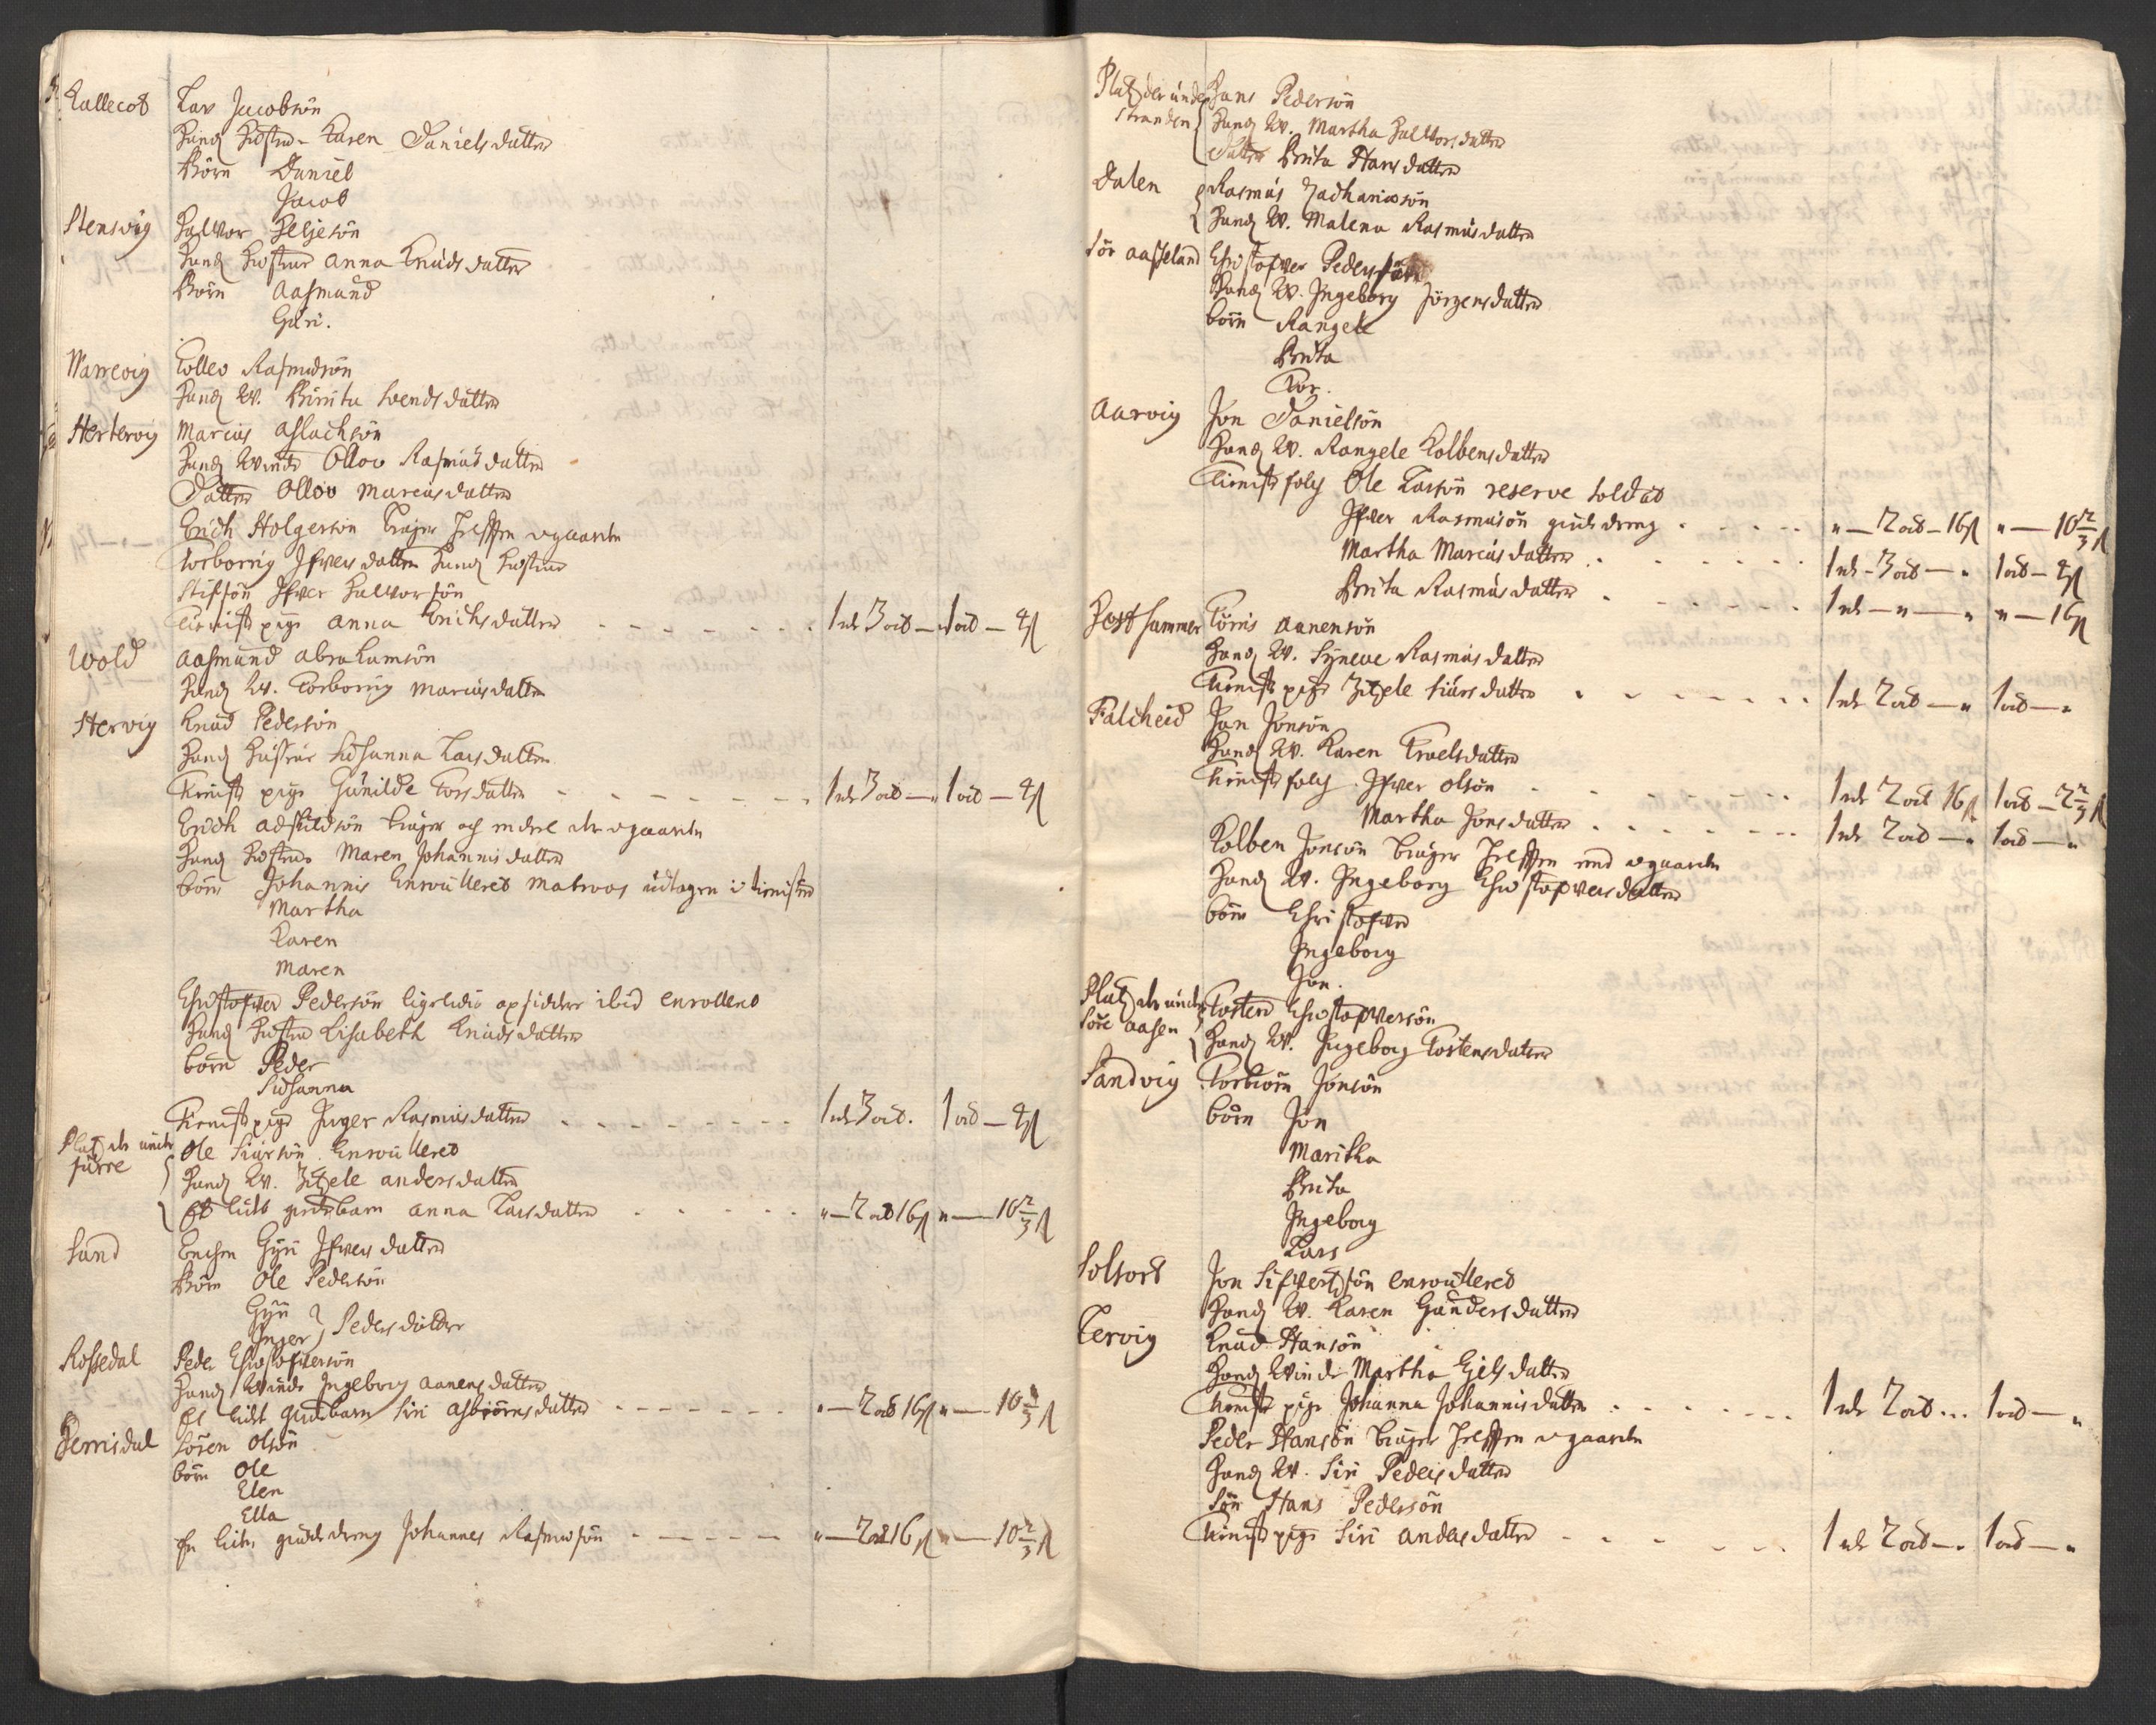 Kallecod Lav Jacobsön
Hans Hustru Karen Danielsdatter
Börn Daniel
Jacob
Stensvig Halvor Heljesön
Hans Hustrue Anna Knudsdatter
Börn Aasmund
Guri.
Warrevig Tollev Rasmusön
Hans Qv. Birrita Svendsdatter
Hertervig Marcus Aslachsön
Hans Qvinde Ollov Rasmusdatter
Datter Ollov Marcusdatter
Erich Holgersön bruger helften v gaarden
Torborrig Ifversdatter Hans Hustrue
Stifsön Ifver Halvorsön
Tienist pige Anna Erichsdatter - - - 1 rd 3 ort — 1 ort — 4 ſ
Wold Aasmund Abrahamsön
Hans Qv. Torborrig Marcusdatter
Hervig Knud Pedersön
Hans Hustrue Susanna Larsdatter
Tienist pige Gunilde Torsdatter - - - 1 rd 3 ort — 1 ort — 4 ſ
Erich Adskildsön bruger och en deel der v gaarden
Hans Hustrue Maren Johannisdatter
börn Johannis Enroulleret Matros udtagen i tienisten
Martha
Karen
Maren
Christopher Pedersön ligeledis opsidder ibid enrolleret
Hans Hustru Lisabeth Knudsdatter
börn Peder
Susanna
Tienist pige Inger Rasmusdatter - - - 1 rd 3 ort. 1 ort — 4 ſ
Platz der under
fürre Ole Siursön Enroulleret
Hans Qv. Zitzele Andersdatter
Et lidet gudsbarn Anna Larsdatter - - - " — 2 ort 16 ſ " — 10 2/3 ſ
Sund Enchen Gÿri Ifversdatter
Börn Ole Pedersön
Gÿri
Inger } Pedersdötter
Rossedal Peder Christophersön
Hans Qvinde Ingeborg Aanensdatter
Et lidet gudsbarn Siri Asbiörnsdatter - - - " — 2 ort 16 ſ " — 10 2/3 ſ
Sören Olsön
börn Ole
Elen
Ella
En liden gudsdreng Johannes Rasmusön - - - " — 2 ort 16 ſ " — 10 2/3 ſ
Platz der under
Stranden Hans Pedersön
Hans Qv. Martha Halvorsdatter
Datter Brita Hansdatter
Dalen Rasmus Zachariasön
Hans Qv. Malena Rasmusdatter
Sör Aasseland Christopher Pedersön
Hans Qv. Ingeborg Jörgensdatter
börn Rangele
Brita
Tor.
Aarvig Jon Danielsön
Hans Qv. Rangele Kolbensdatter
Tienist folch Ole Larsön reserve soldat
Ifver Rasmusön gudsdreng - - - " — 2 ort — 16 ſ " — 10 2/3 ſ
Martha Marcusdatter - - - 1 rd - 3 ort — " 1 ort — 4 ſ
Brita Rasmusdatter - - - 1 rd — " — " " — 16 ſ
Hesthammer Törris Aanensön
Hans Qv. Sÿneve Rasmusdatter
Tienist pige Zitzele Siursdatter - - - 1 rd 2 ort — " 1 ort — "
Falcheid Jan Jonsön
Hans Qv. Karen Troelsdatter
Tienist folch Ifver Olsön - - - 1 rd 2 ort 16 ſ 1 ort — 2 2/3 ſ
Martha Jonsdatter - - - 1 rd 2 ort — " 1 ort — "
Kolben Jonsön bruger helften ved v gaarden
Hans Qv. Ingeborg Christophersdatter
börn Christopher
Ingeborg
Jon.
Platz der under
Söre Aasen Tosten Christophersön
Hans Qv. Ingeborg Tostensdatter
Sandvig Torbiörn Jonsön
börn Jon
Maritha
Brita
Ingeborg
Lars
Solsord Jon Sifvertsön enroulleret
Hans Qv. Karen Gundersdatter
Tervig Knud Hansön
Hans Qvinde Martha Eielsdatter
Tienist pige Johanna Johannisdatter - - - 1 rd 2 ort ... 1 ort — "
Peder Hansön bruger helften v gaarden
Hans Qv. Siri Pedersdatter
Sön Hans Pedersön
Tienist pige Siri Andersdatter - - - 1 rd 2 ort — " 1 ort — "